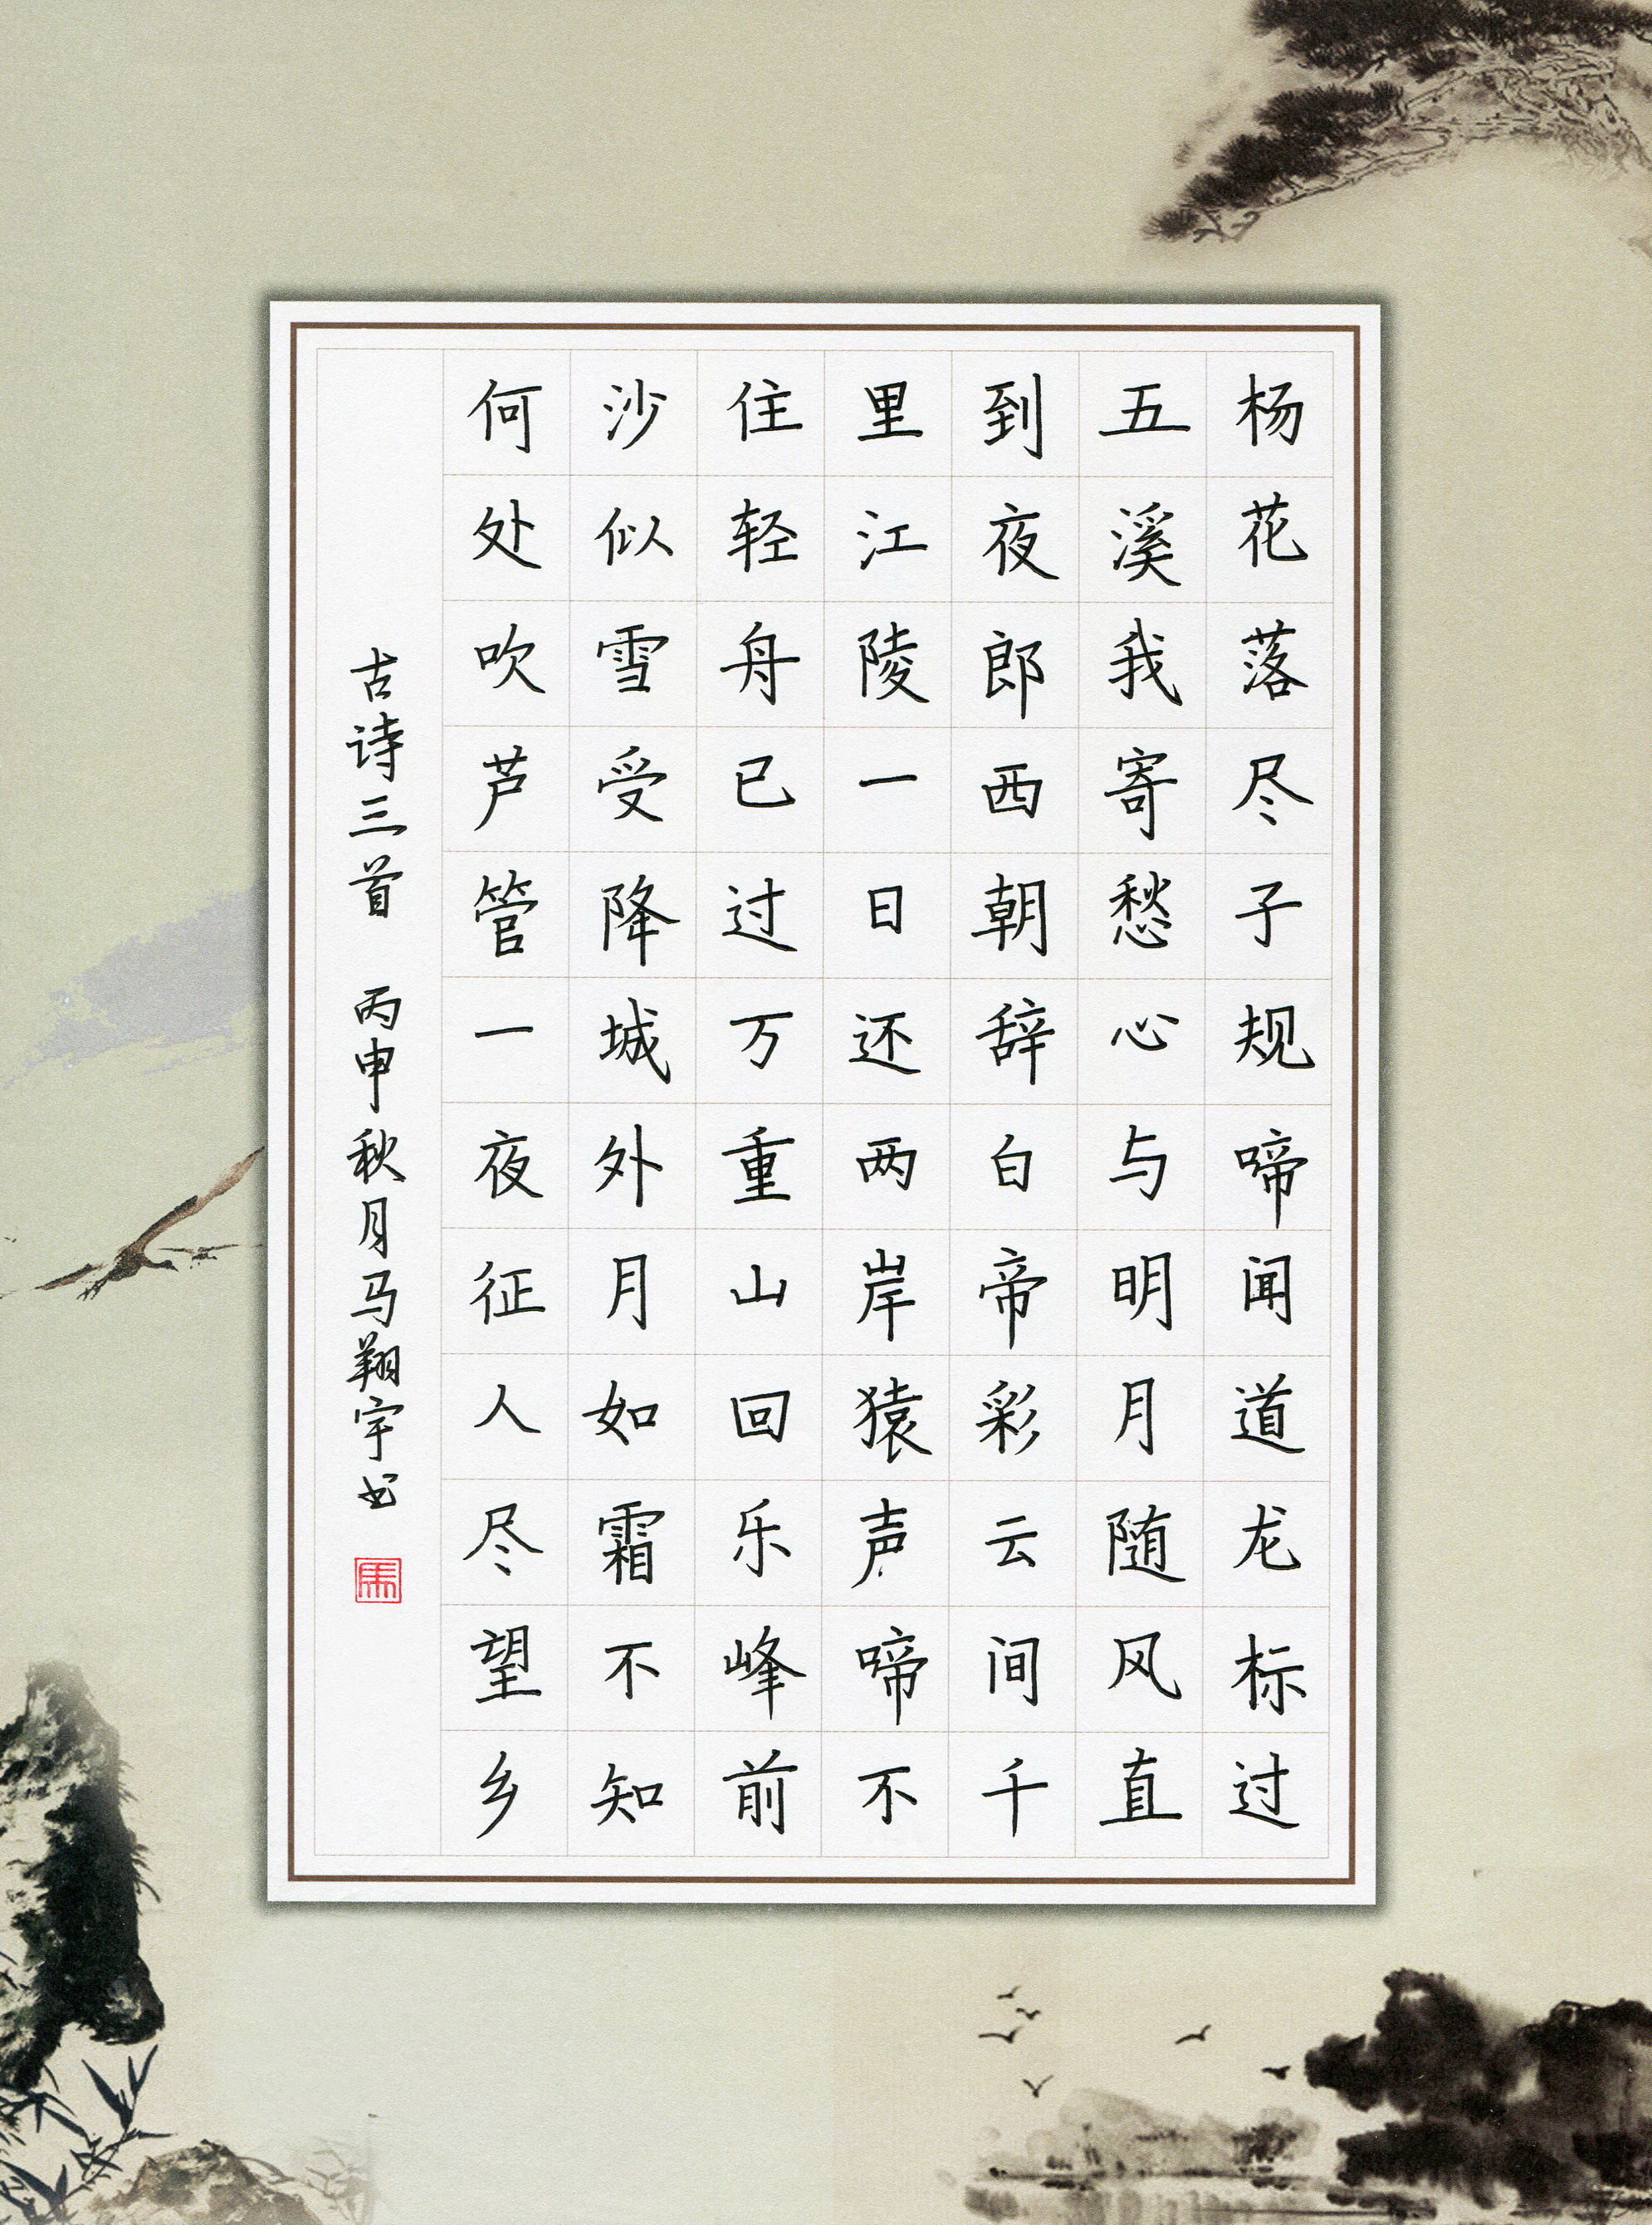 杨花落尽子规啼闻道龙标过
五溪我寄愁心与明月随风直
到夜郎西朝辞白帝彩云间千
里江陵一日还两岸猿声啼不
住轻舟已过万重山回乐峰前
沙似雪受降城外月如霜不知
何处吹芦管一夜征人尽望乡
古诗三首 丙申秋月马翔宇书
馬